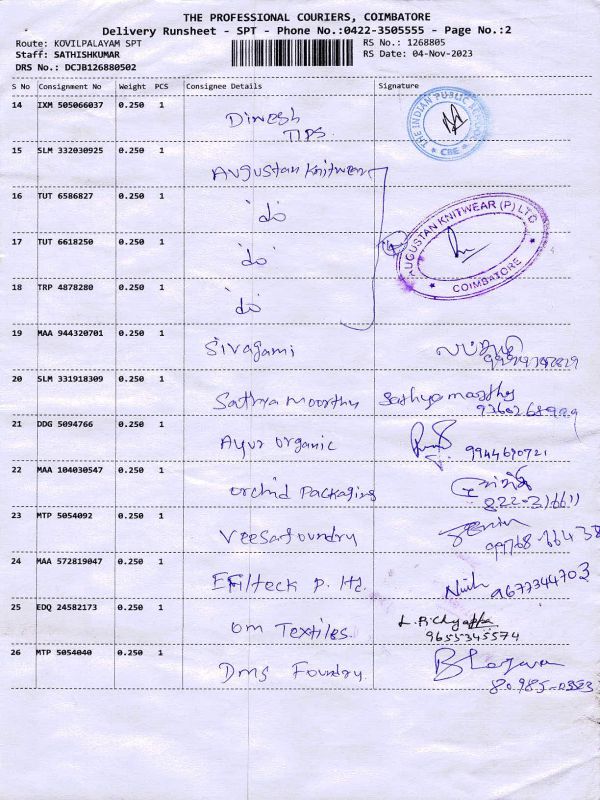 THE PROFESSIONAL COURIERS, COIMBATORE
Delivery Runsheet - SPT - Phone No.:0422-3505555 - Page No.:2
Route: KOVILPALAYAM SPT RS No.: 1268805
Staff: SATHISHKUMAR RS Date: 04-Nov-2023
DRS No.: DCJB126880502
S No Consignment No Weight PCS Consignee Details Signature
14 IXM 505066037 0.250 1 Dinesh
TIPS
THE INDIAN PUBLIC
CBE
15 SLM 332030925 0.250 1 Augustan Knitwear
16 TUT 6586827 0.250 1 "do"
17 TUT 6618250 0.250 1 "do"
AUGUSTAN KNITWEAR (P) LTD
COIMBATORE
18 TRP 4878280 0.250 1 "do"
19 MAA 944320701 0.250 1 Sivagami
20 SLM 331918309 0.250 1 Sathya Moorthy Sathya moorthy
21 DDG 5094766 0.250 1 Ayur organic 9944690721
22 MAA 104030547 0.250 1 Orchid Packaging
23 MTP 5054092 0.250 1 Veesafoundry
24 MAA 572819047 0.250 1 P. ltd. 9677344703
25 EDQ 24582173 0.250 1 Om Textiles.
9655345574
26 MTP 5054040 0.250 1 Dms Foundry.